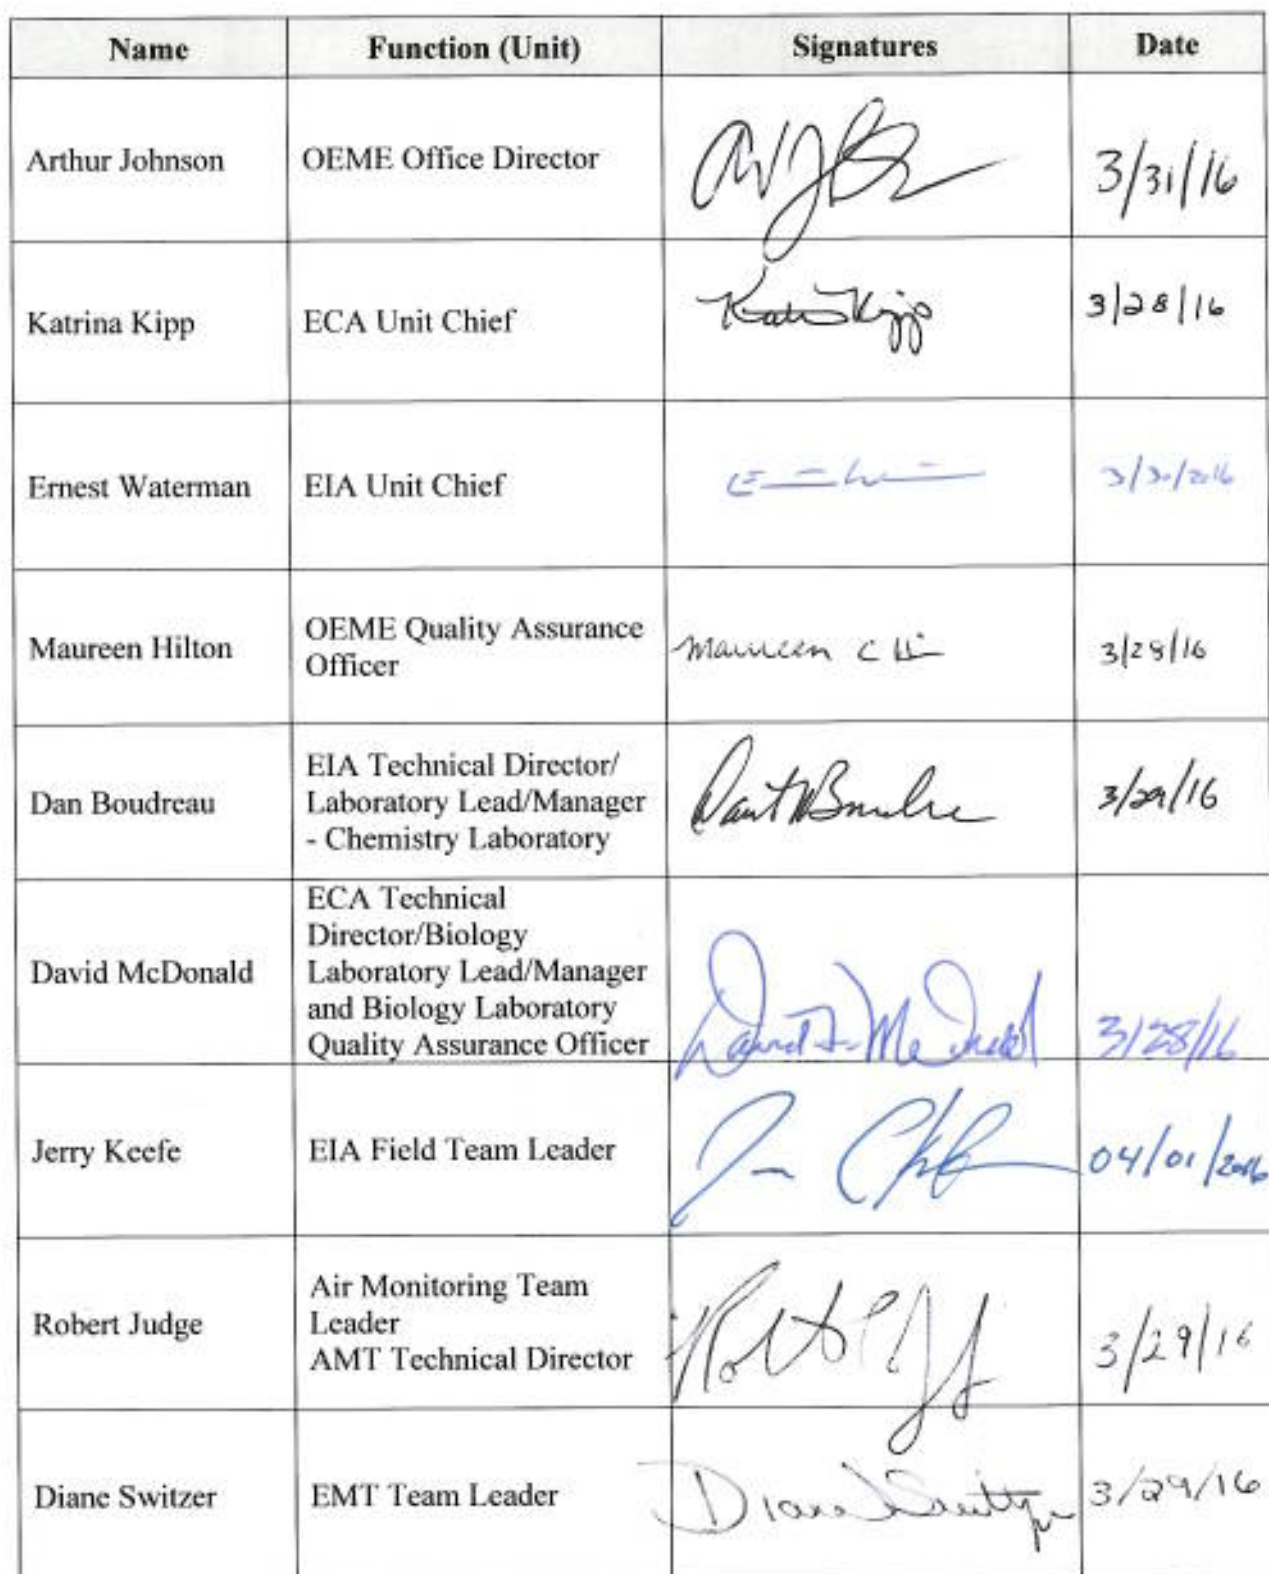 Name Function (Unit) Signatures Date
Arthur Johnson OEME Office Director 3/31/16
Katrina Kipp ECA Unit Chief Kipp 3/28/16
Ernest Waterman EIA Unit Chief 3/30/2016
Maureen Hilton OEME Quality Assurance
Officer Maureen C 3/28/16
Dan Boudreau EIA Technical Director/
Laboratory Lead/Manager
- Chemistry Laboratory 3/29/16
David McDonald ECA Technical
Director/Biology
Laboratory Lead/Manager
and Biology Laboratory
Quality Assurance Officer David McDonald 3/28/16
Jerry Keefe EIA Field Team Leader 04/01/2016
Robert Judge Air Monitoring Team
Leader
AMT Technical Director 3/29/16
Diane Switzer EMT Team Leader Diane Switzer 3/29/16